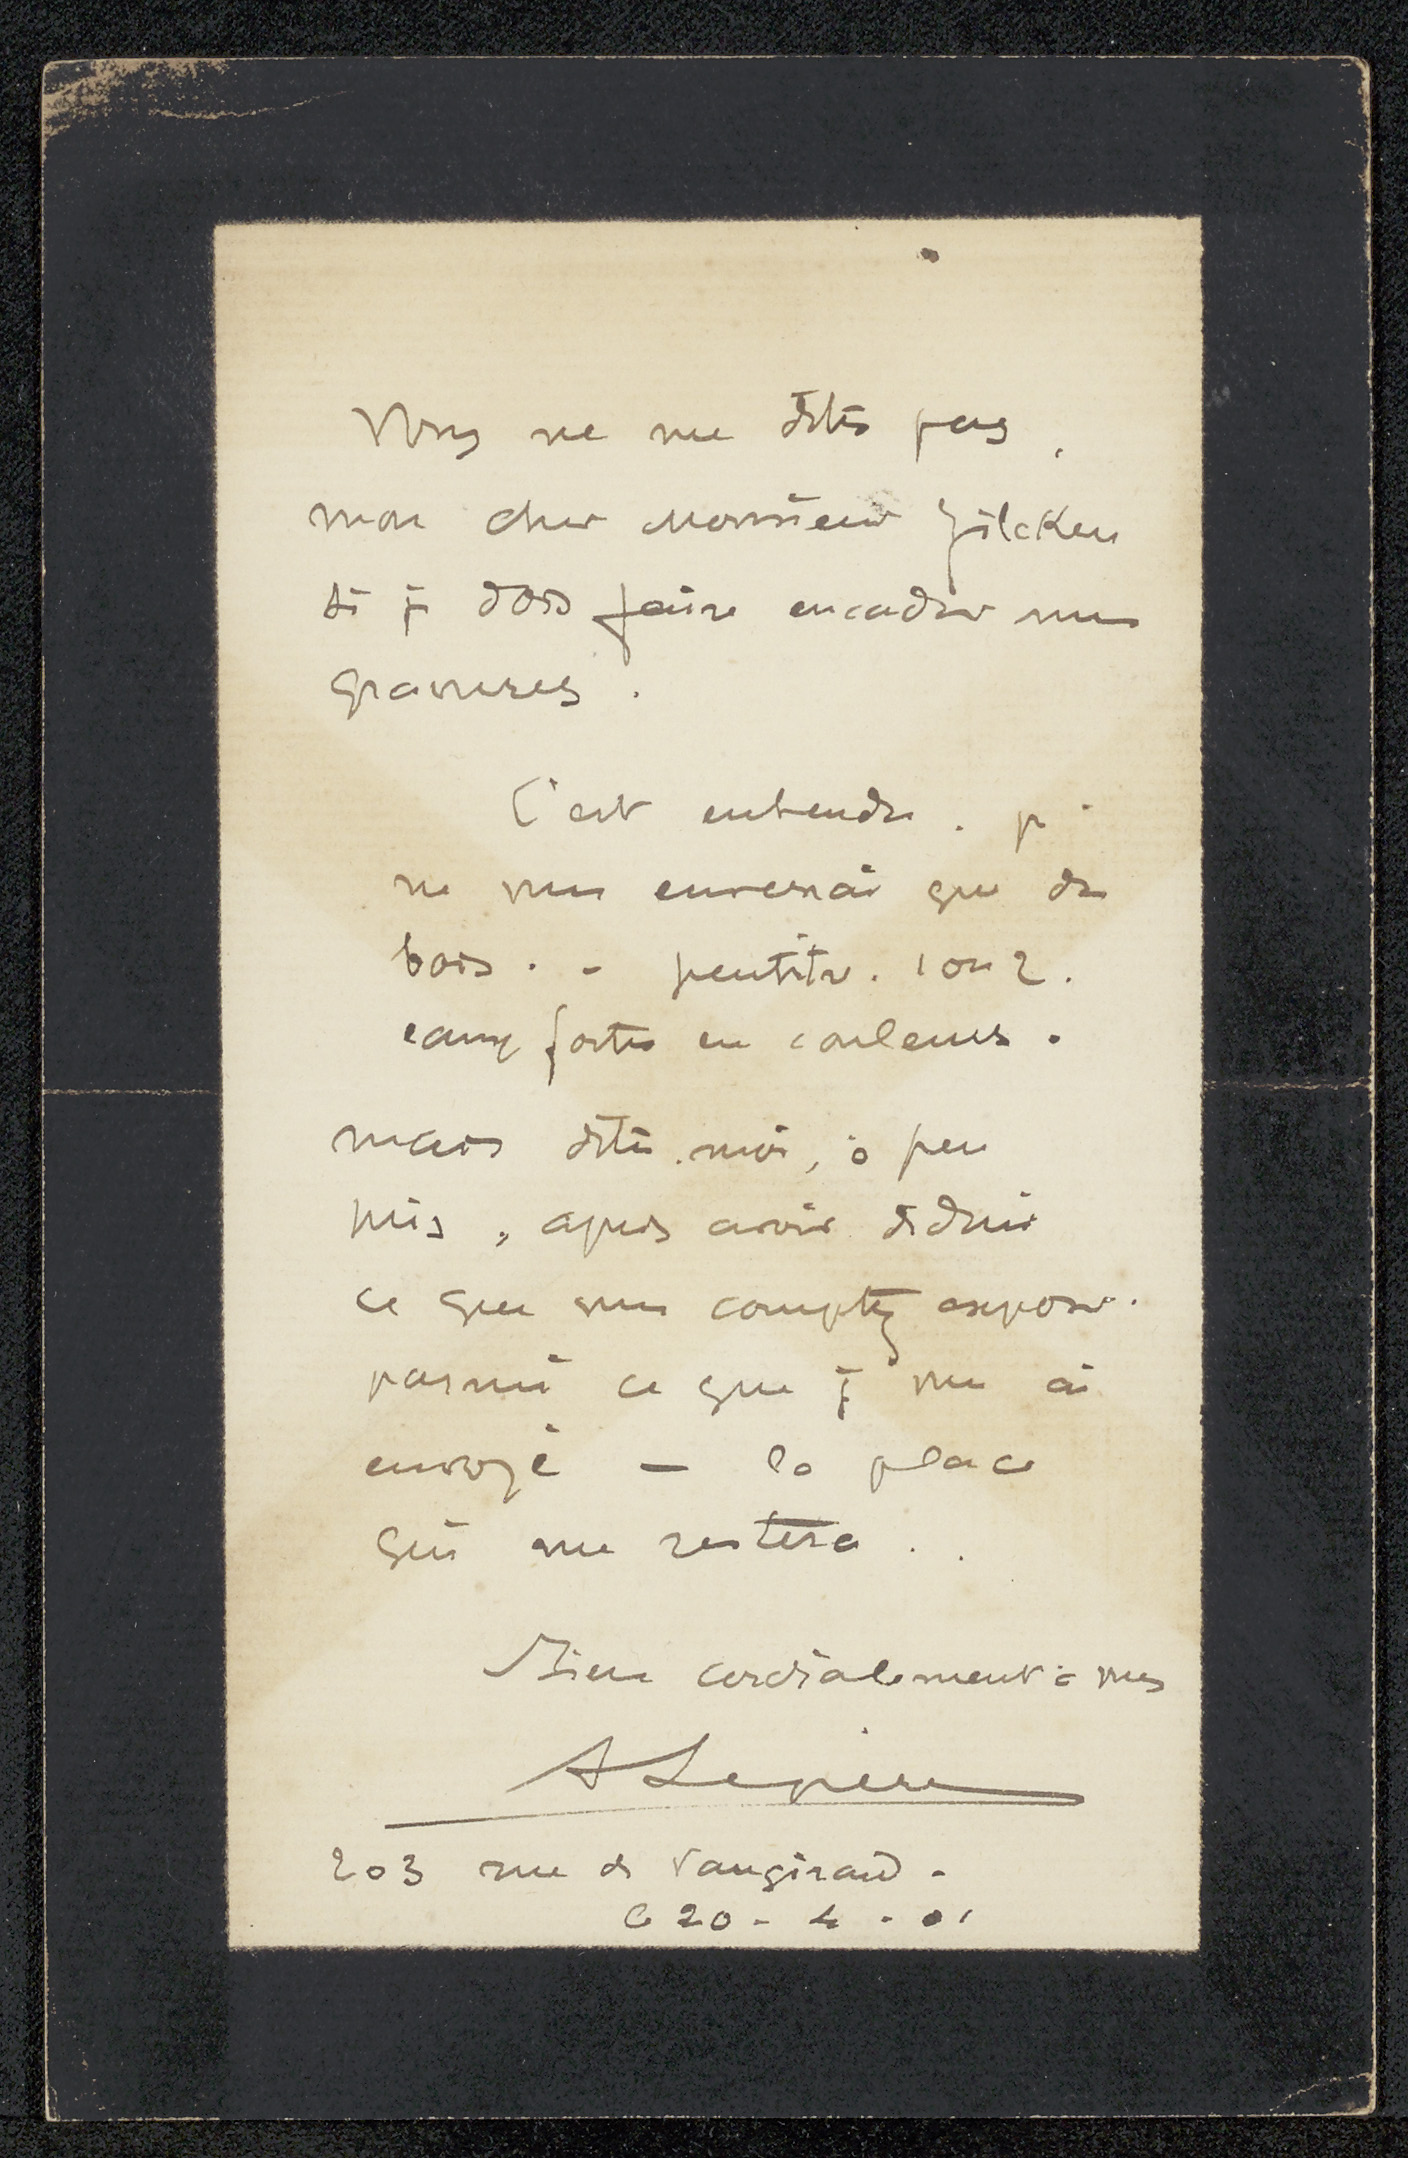 Vous ne me dites pas,
mon cher Monsieur Zilcken
si je dois faire encadrer mes
gravures.
C'est entendu. je
ne vous enverrai que des
bois. - peut-être. 1 ou 2.
eaux fortes en couleurs.
mais dites moi, à peu
près, après avoir déduit
ce que vous comptez exposer.
parmi ce que je vous ai
envoyé - la place
qui me restera..
Bien cordialement à vous
A Lepère
203 rue de Vaugirard.
Ce 20 - 4 - 01